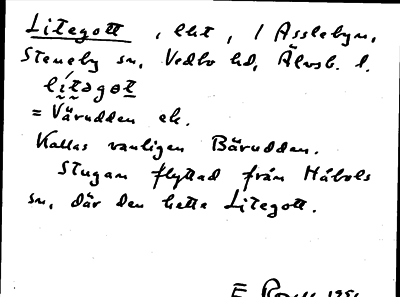 Litegott, lht, / Asslebyn,
Steneby sn, Vedbo hd, Älvsb. l.
lítəgət
= Värudden ek.
Kallas vanligen Bärudden.
Stugan flyttad från Håbols
sn, där den hette Litegott.
E